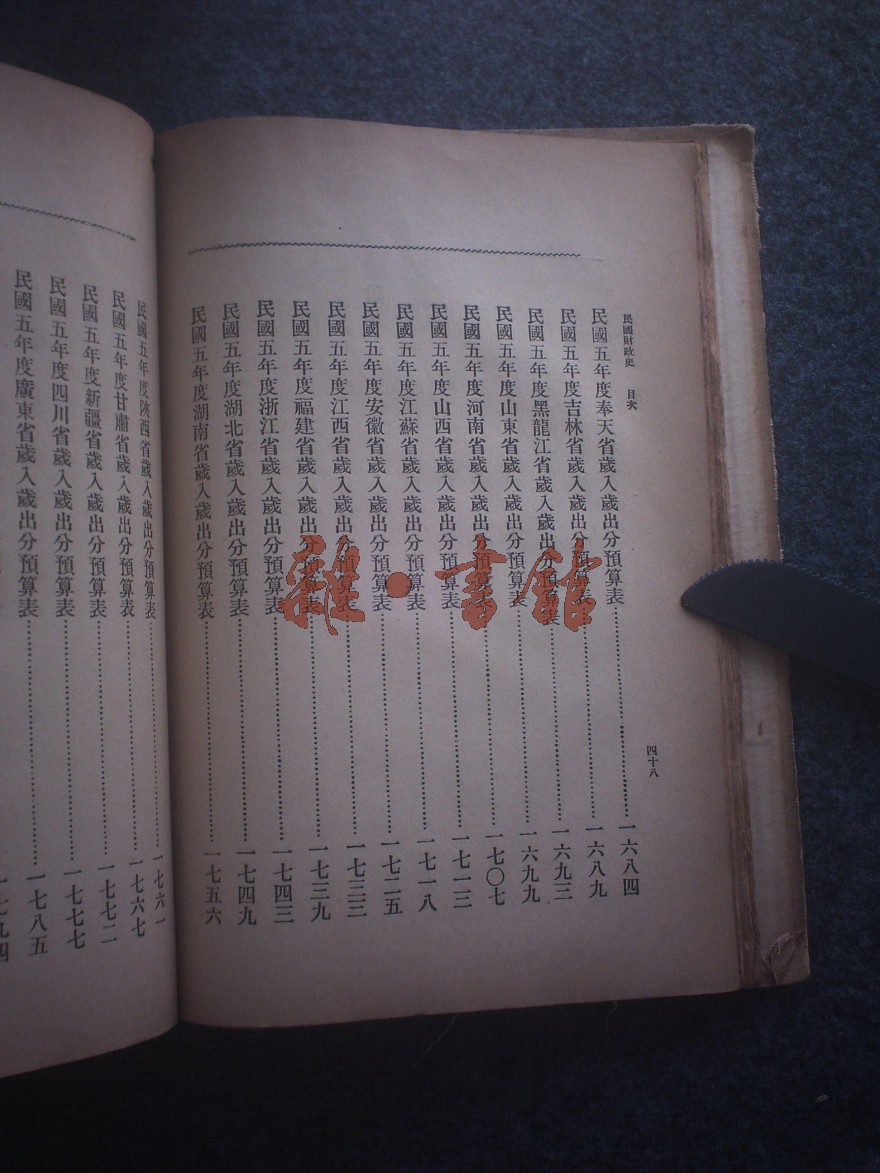 民國財政史 目次
四十八
民國五年度奉天省歲入歲出分預算表……一六八四
民國五年度吉林省歲入歲出分預算表……一六八九
民國五年度黑龍江省歲入歲出分預算表……一六九三
民國五年度山東省歲入歲出分預算表……一六九九
民國五年度河南省歲入歲出分預算表……一七〇七
民國五年度山西省歲入歲出分預算表……一七一三
民國五年度江蘇省歲入歲出分預算表……一七一八
民國五年度安徽省歲入歲出分預算表……一七二五
民國五年度江西省歲入歲出分預算表……一七三三
民國五年度福建省歲入歲出分預算表……一七三九
民國五年度浙江省歲入歲出分預算表……一七四三
民國五年度湖北省歲入歲出分預算表……一七四九
民國五年度湖南省歲入歲出分預算表……一七五六
民國五年度陝西省歲入歲出分預算表……一七六一
民國五年度甘肅省歲入歲出分預算表……一七六七
民國五年度新疆省歲入歲出分預算表……一七七二
民國五年度四川省歲入歲出分預算表……一七七七
民國五年度廣東省歲入歲出分預算表……一七八五
一七九四
雜·書館